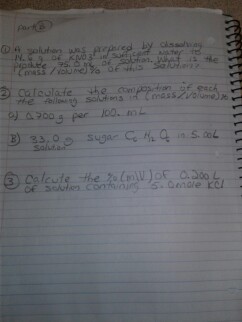 Part B
① A solution was prepared by dissolving
of KNO3 in sufficient water to
produce 75.0 mL of solution What is the
(mass/volume)% of this solution?
② Calculate the composition of each
the following solutions in (mass/volume)%
a) 0.700 g per 100. mL
B) 33.0 g sugar C6 H12 O6 in 5.00L
solution
③ Calcute the % (m/V) of 0.200 L
of solution containing 5.0 mole KCl